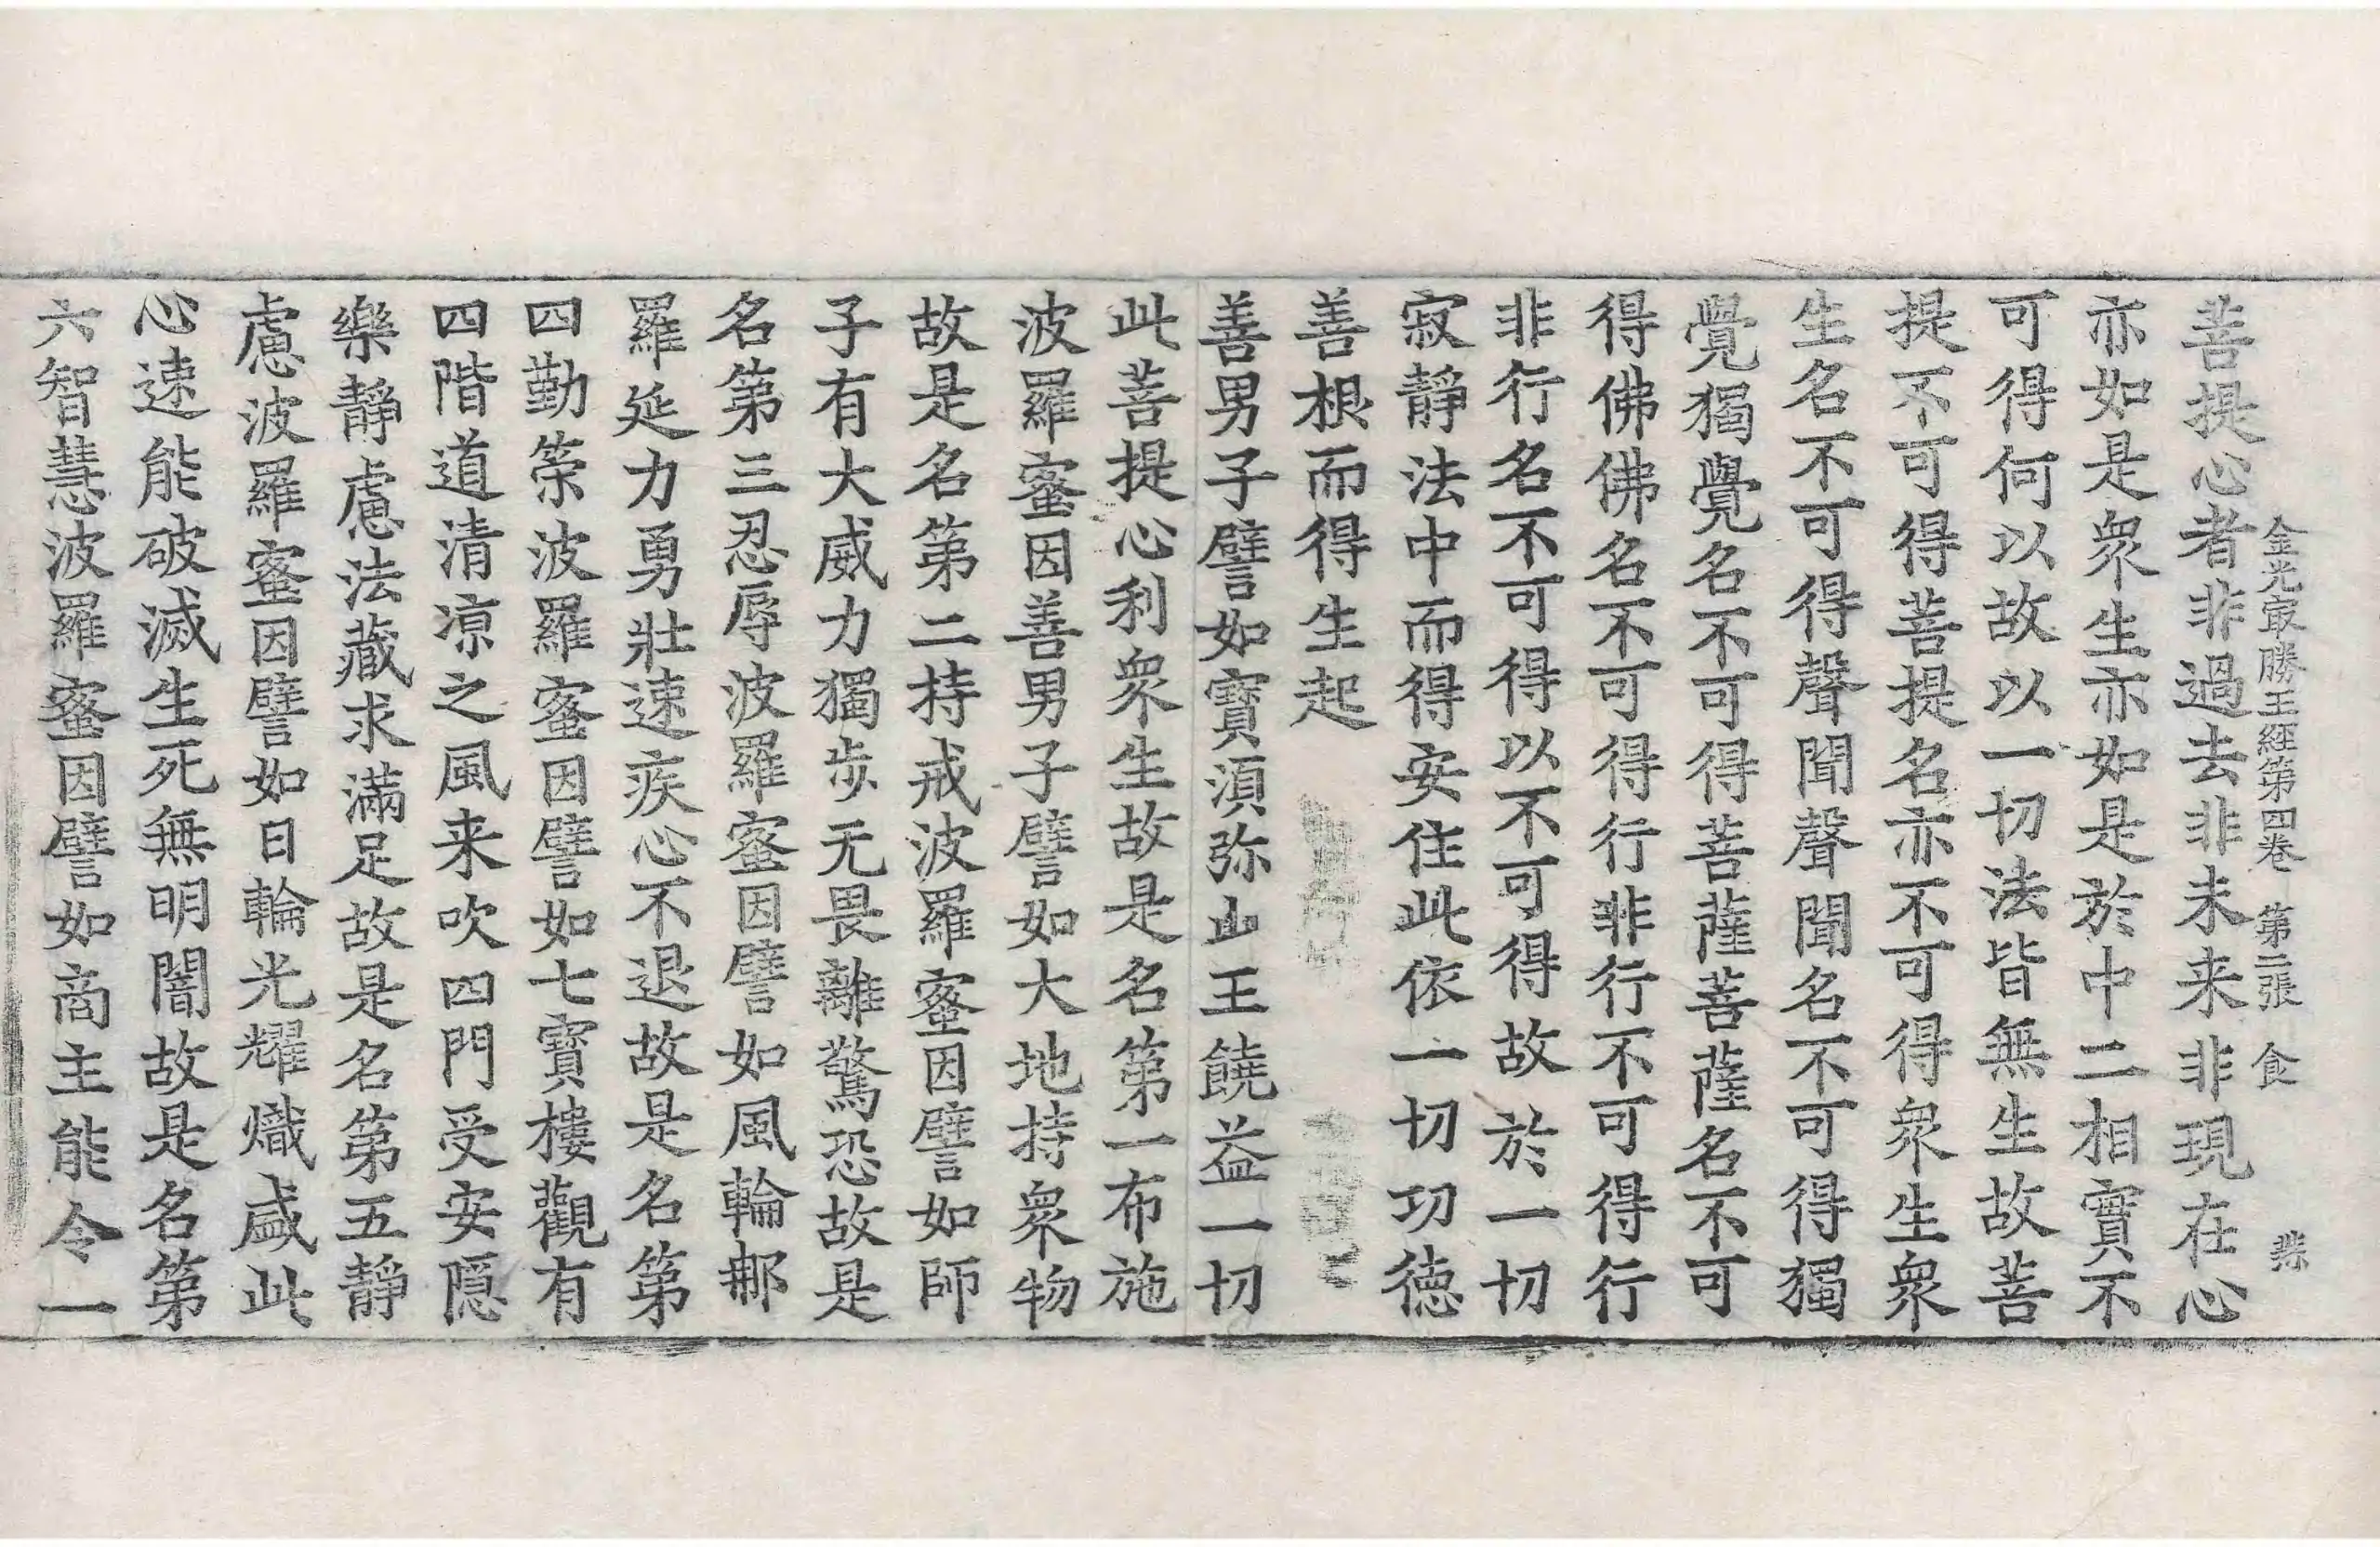 金光㝡勝王經第四卷　第二張　食
菩提心者非過去非未来非現在心
亦如是衆生亦如是於中二相實不
可得何以故以一切法皆無生故菩
提不可得菩提名亦不可得衆生衆
生名不可得聲聞聲聞名不可得獨
覺獨覺名不可得菩薩菩薩名不可
得佛佛名不可得行非行不可得行
非行名不可得以不可得故於一切
寂静法中而得安住此依一切功德
善根而得生起
善男子譬如寶湏弥山王饒益一切
此菩提心利衆生故是名第一布施
波羅蜜因善男子譬如大地持衆物
故是名第二持戒波羅蜜因譬如師
子有大威力獨步无畏離驚恐故是
名第三忍辱波羅蜜因譬如風輪那
羅延力勇壯速疾心不退故是名第
四勤策波羅蜜因譬如七寶樓觀有
四階道清凉之風来吹四門受安隱
樂静慮法藏求滿足故是名第五静
慮波羅蜜因譬如日輪光耀熾盛此
心速能破滅生死無明闇故是名第
六智慧波羅蜜因譬如商主能令一